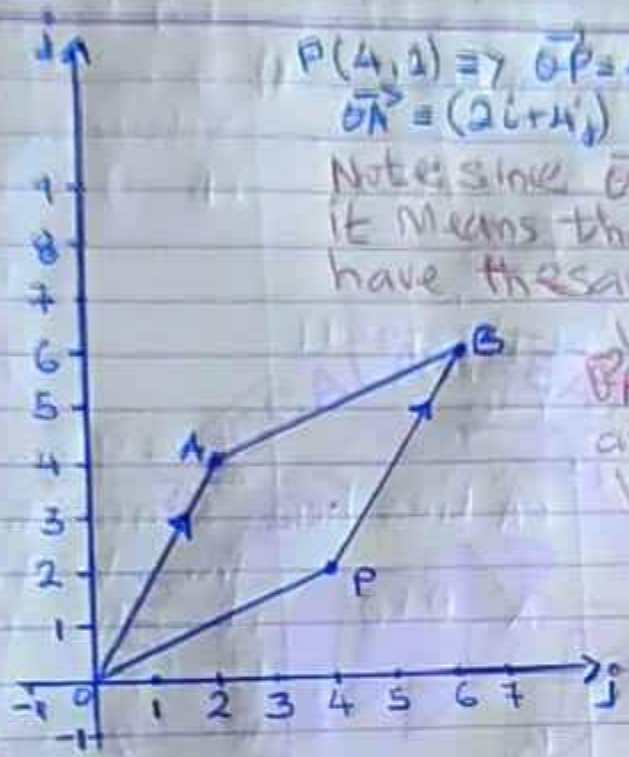 i
P(4,2) ≡> OP =
OA = (2i+4j)
Note: since
it Means
have thesa
9
8
7
6 B
5
A
4
3
2 P
1
-1 0 1 2 3 4 5 6 7 j
-1